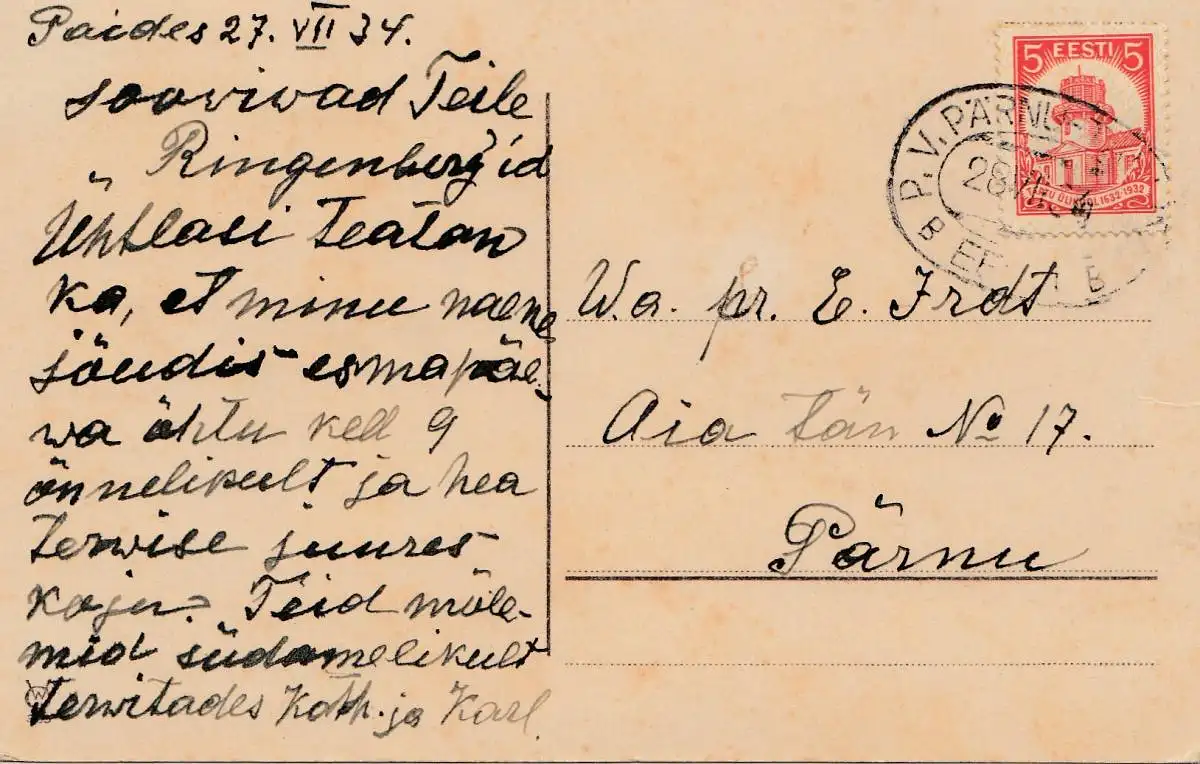 Paides 27. VII 34.
soowiwad Teile
Ringenberg'id
Ühtlasi teatan
ka, et minu naene
jõudis esmapäe-
wa õhtu kell 9
õnnelikult ja hea
terwise juures
koju. Teid mõle-
mid südamelikult
terwitades Kath. ja Karl.
5 EESTI 5
1632-1932
P.V. PÄRNU
28
B B
W.a. pr. E. Irdt
Aia tän No 17.
Pärnu